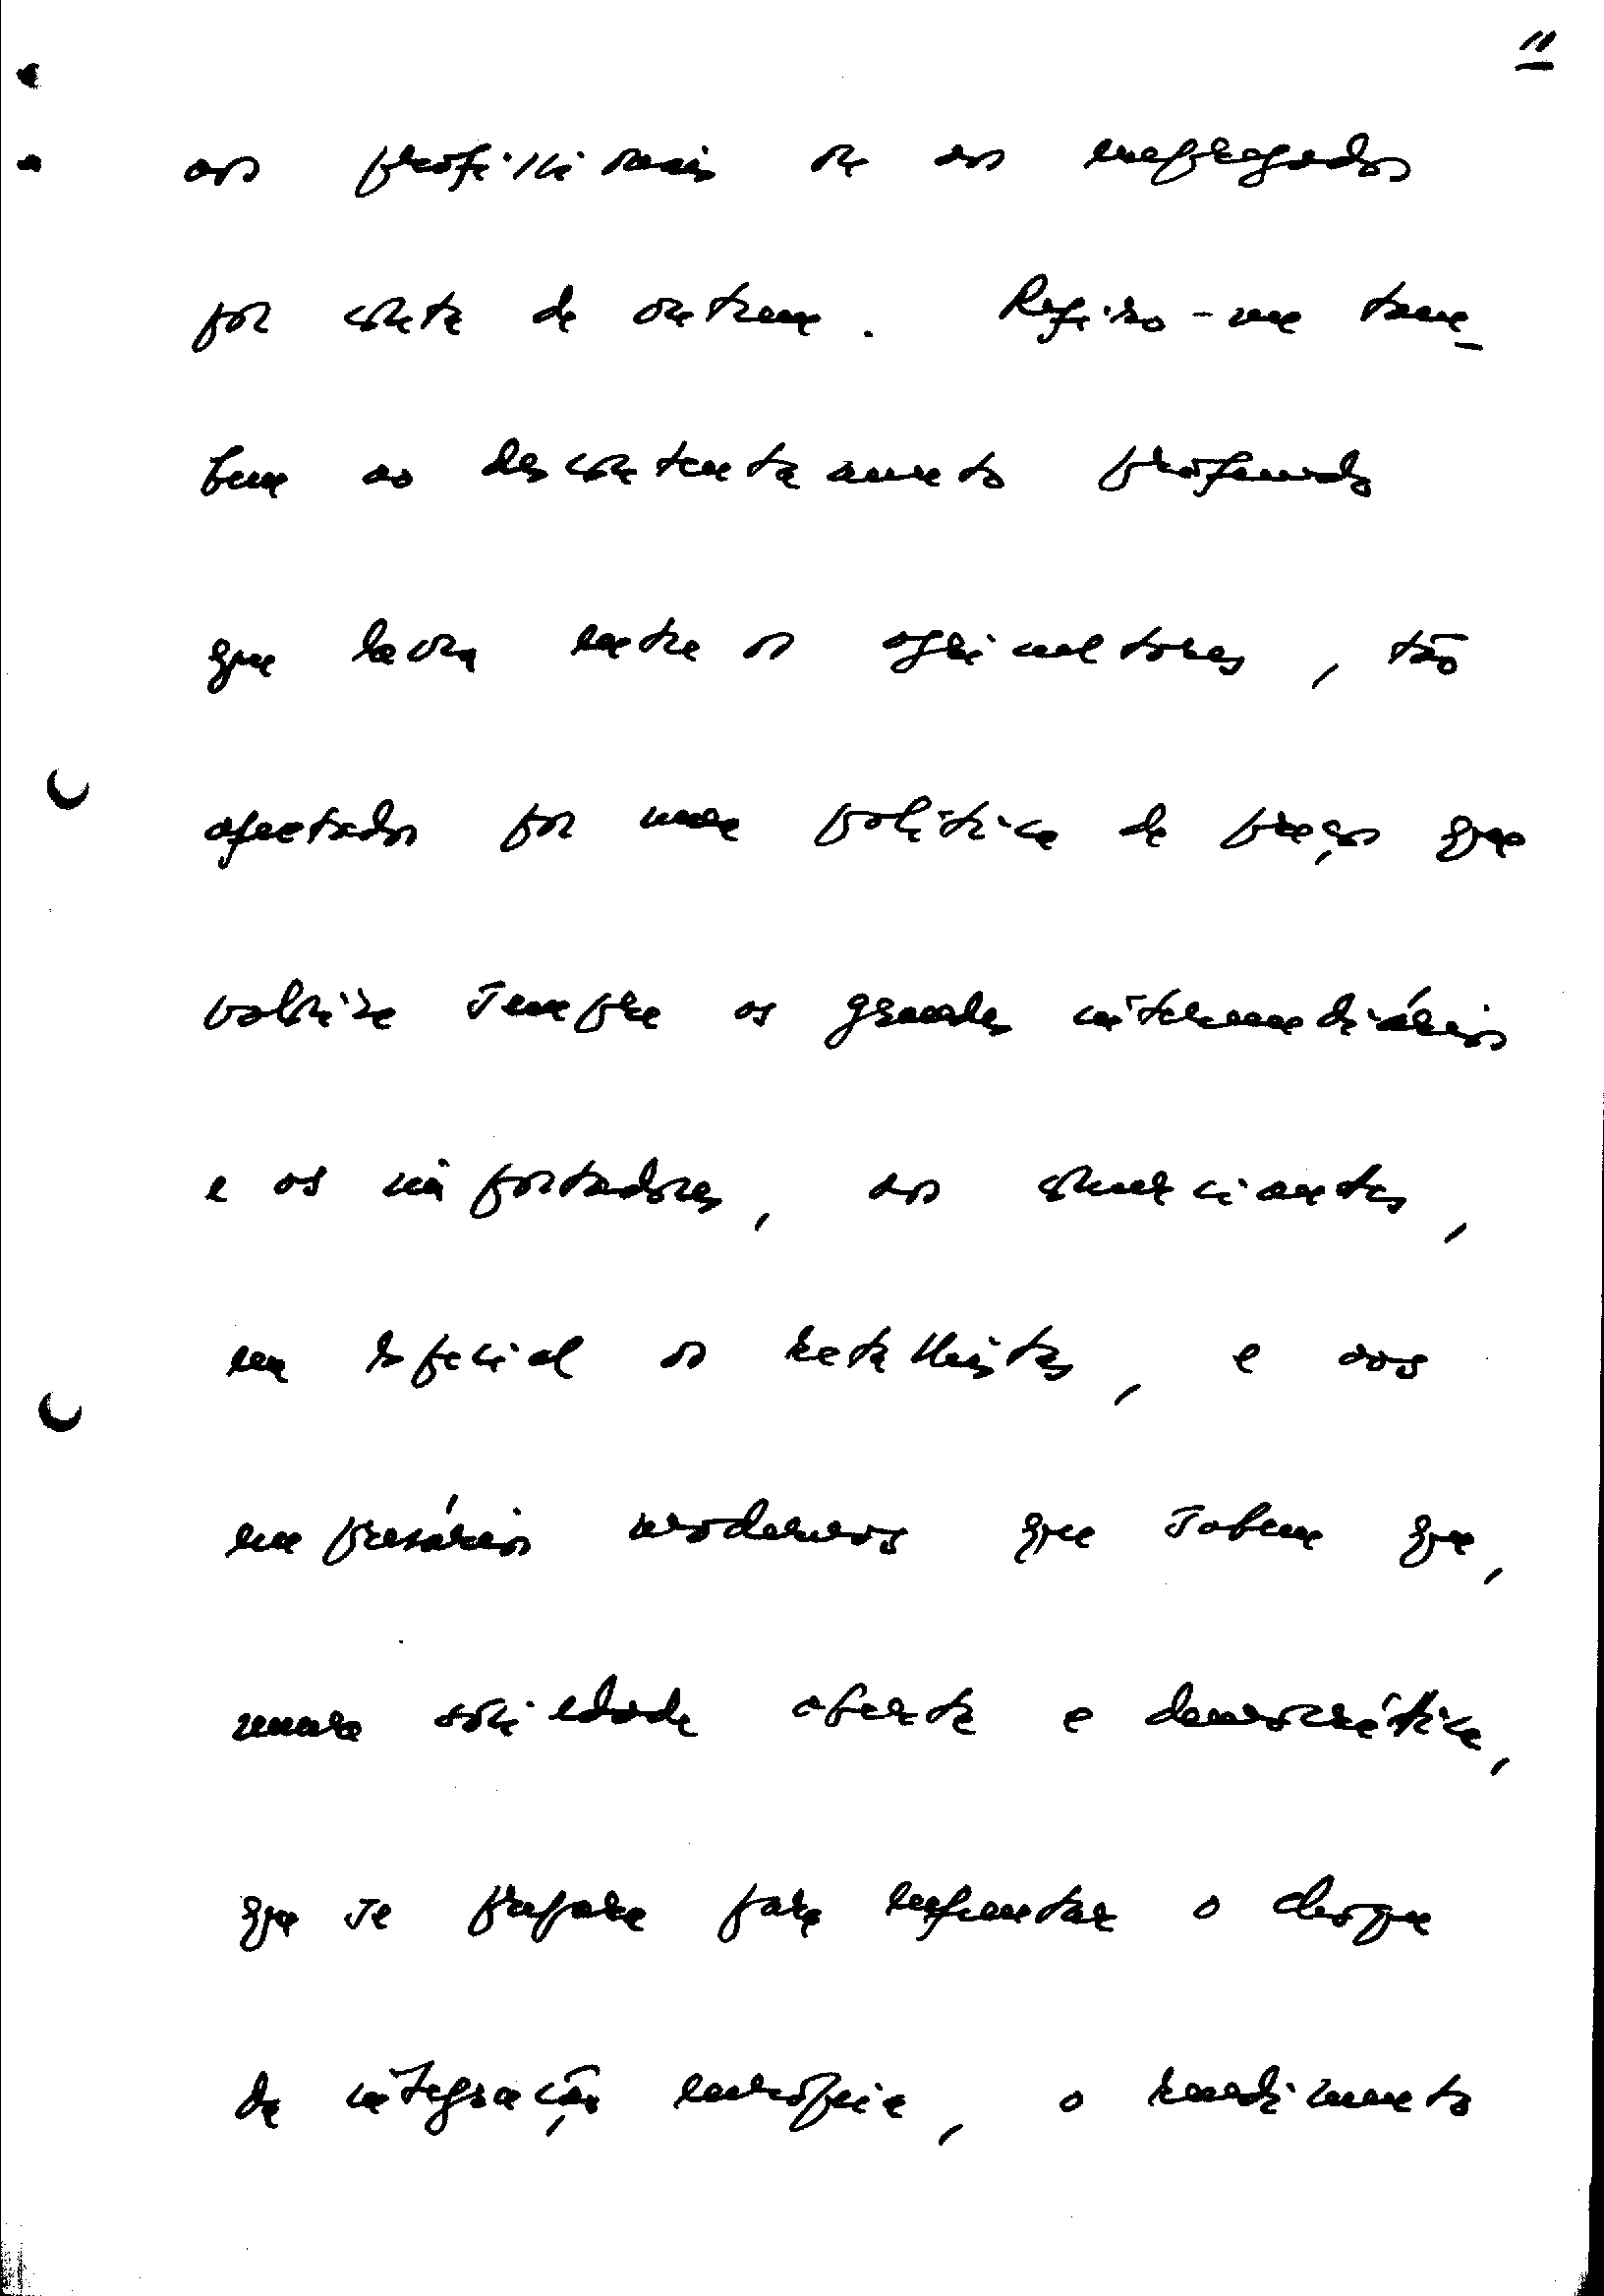 11
aos profissionais ou aos empregados
por conta de outrem. Refiro-me tam-
bem ao descontentamento profundo
que lavra entre os agricultores, tão
afectados por uma política de preços que
valoriza sempre os grandes intermediários
e os importadores, aos comerciantes,
em especial os retalhistas, e aos
empresários modernos que sabem que,
numa sociedade aberta e democrática,
que se prepara para enfrentar o choque
da integração europeia, o rendimento